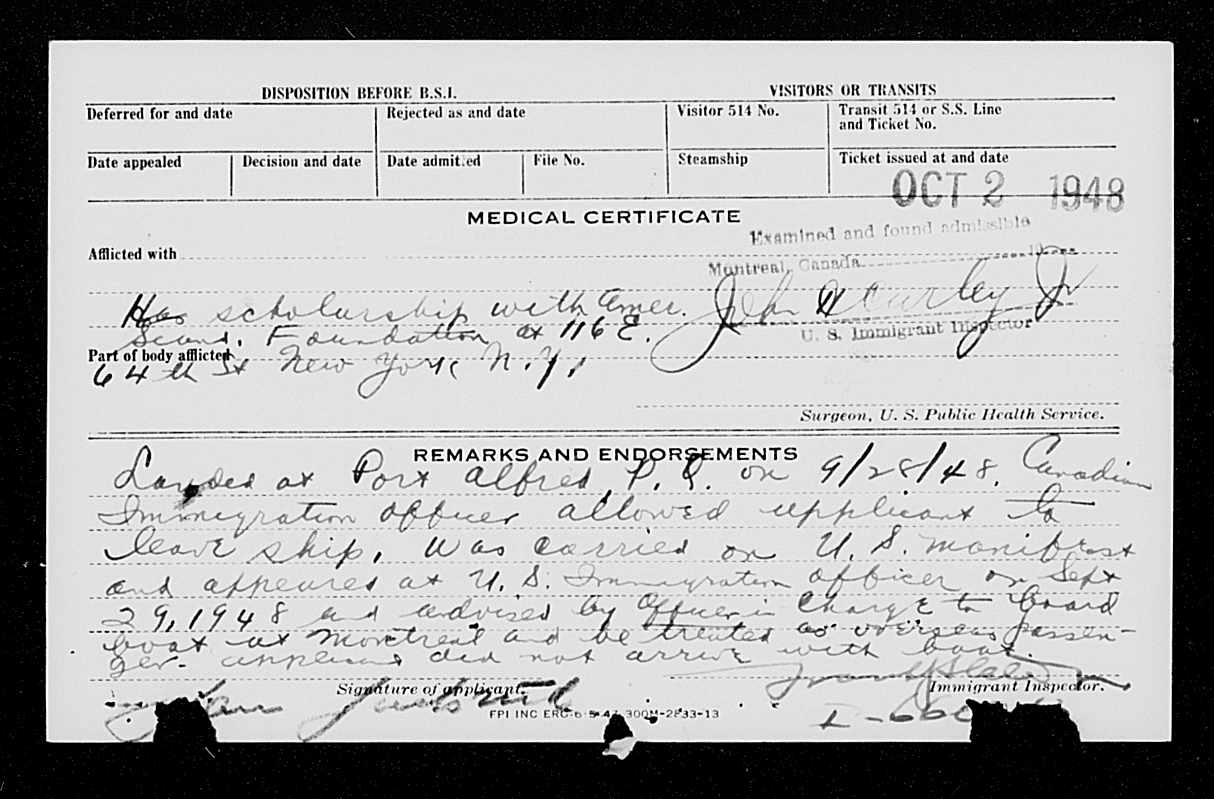 DISPOSITION BEFORE B.S.I. VISITORS OR TRANSITS
Deferred for and date Rejected as and date Visitor 514 No. Transit 514 or S.S. Line
and Ticket No.
Date appealed Decision and date Date admitted File No. Steamship Ticket issued at and date
OCT 2 1948
MEDICAL CERTIFICATE
Examined and found admissible
Afflicted with
Montreal, Canada 19
Has scholarship with Amer. John H Curley Jr
Scand. Foundation at 116 E.
U. S. Immigrant Inspector
Part of body afflicted
64th St New York N.Y.
Surgeon, U. S. Public Health Service.
REMARKS AND ENDORSEMENTS
Landed at Port Alfred, P.Q. on 9/28/48. Canadian
Immigration officer allowed applicant to
leave ship. Was carried on U.S. manifest
and appeared at U.S. Immigration officer on Sept
29, 1948 and advised by Officer in Charge to board
boat at Montreal and be treated as overseas passen-
ger. applicant did not arrive with boat.
Signature of applicant. Immigrant Inspector.
FPI INC ERC-6-5-47-300M-2833-13